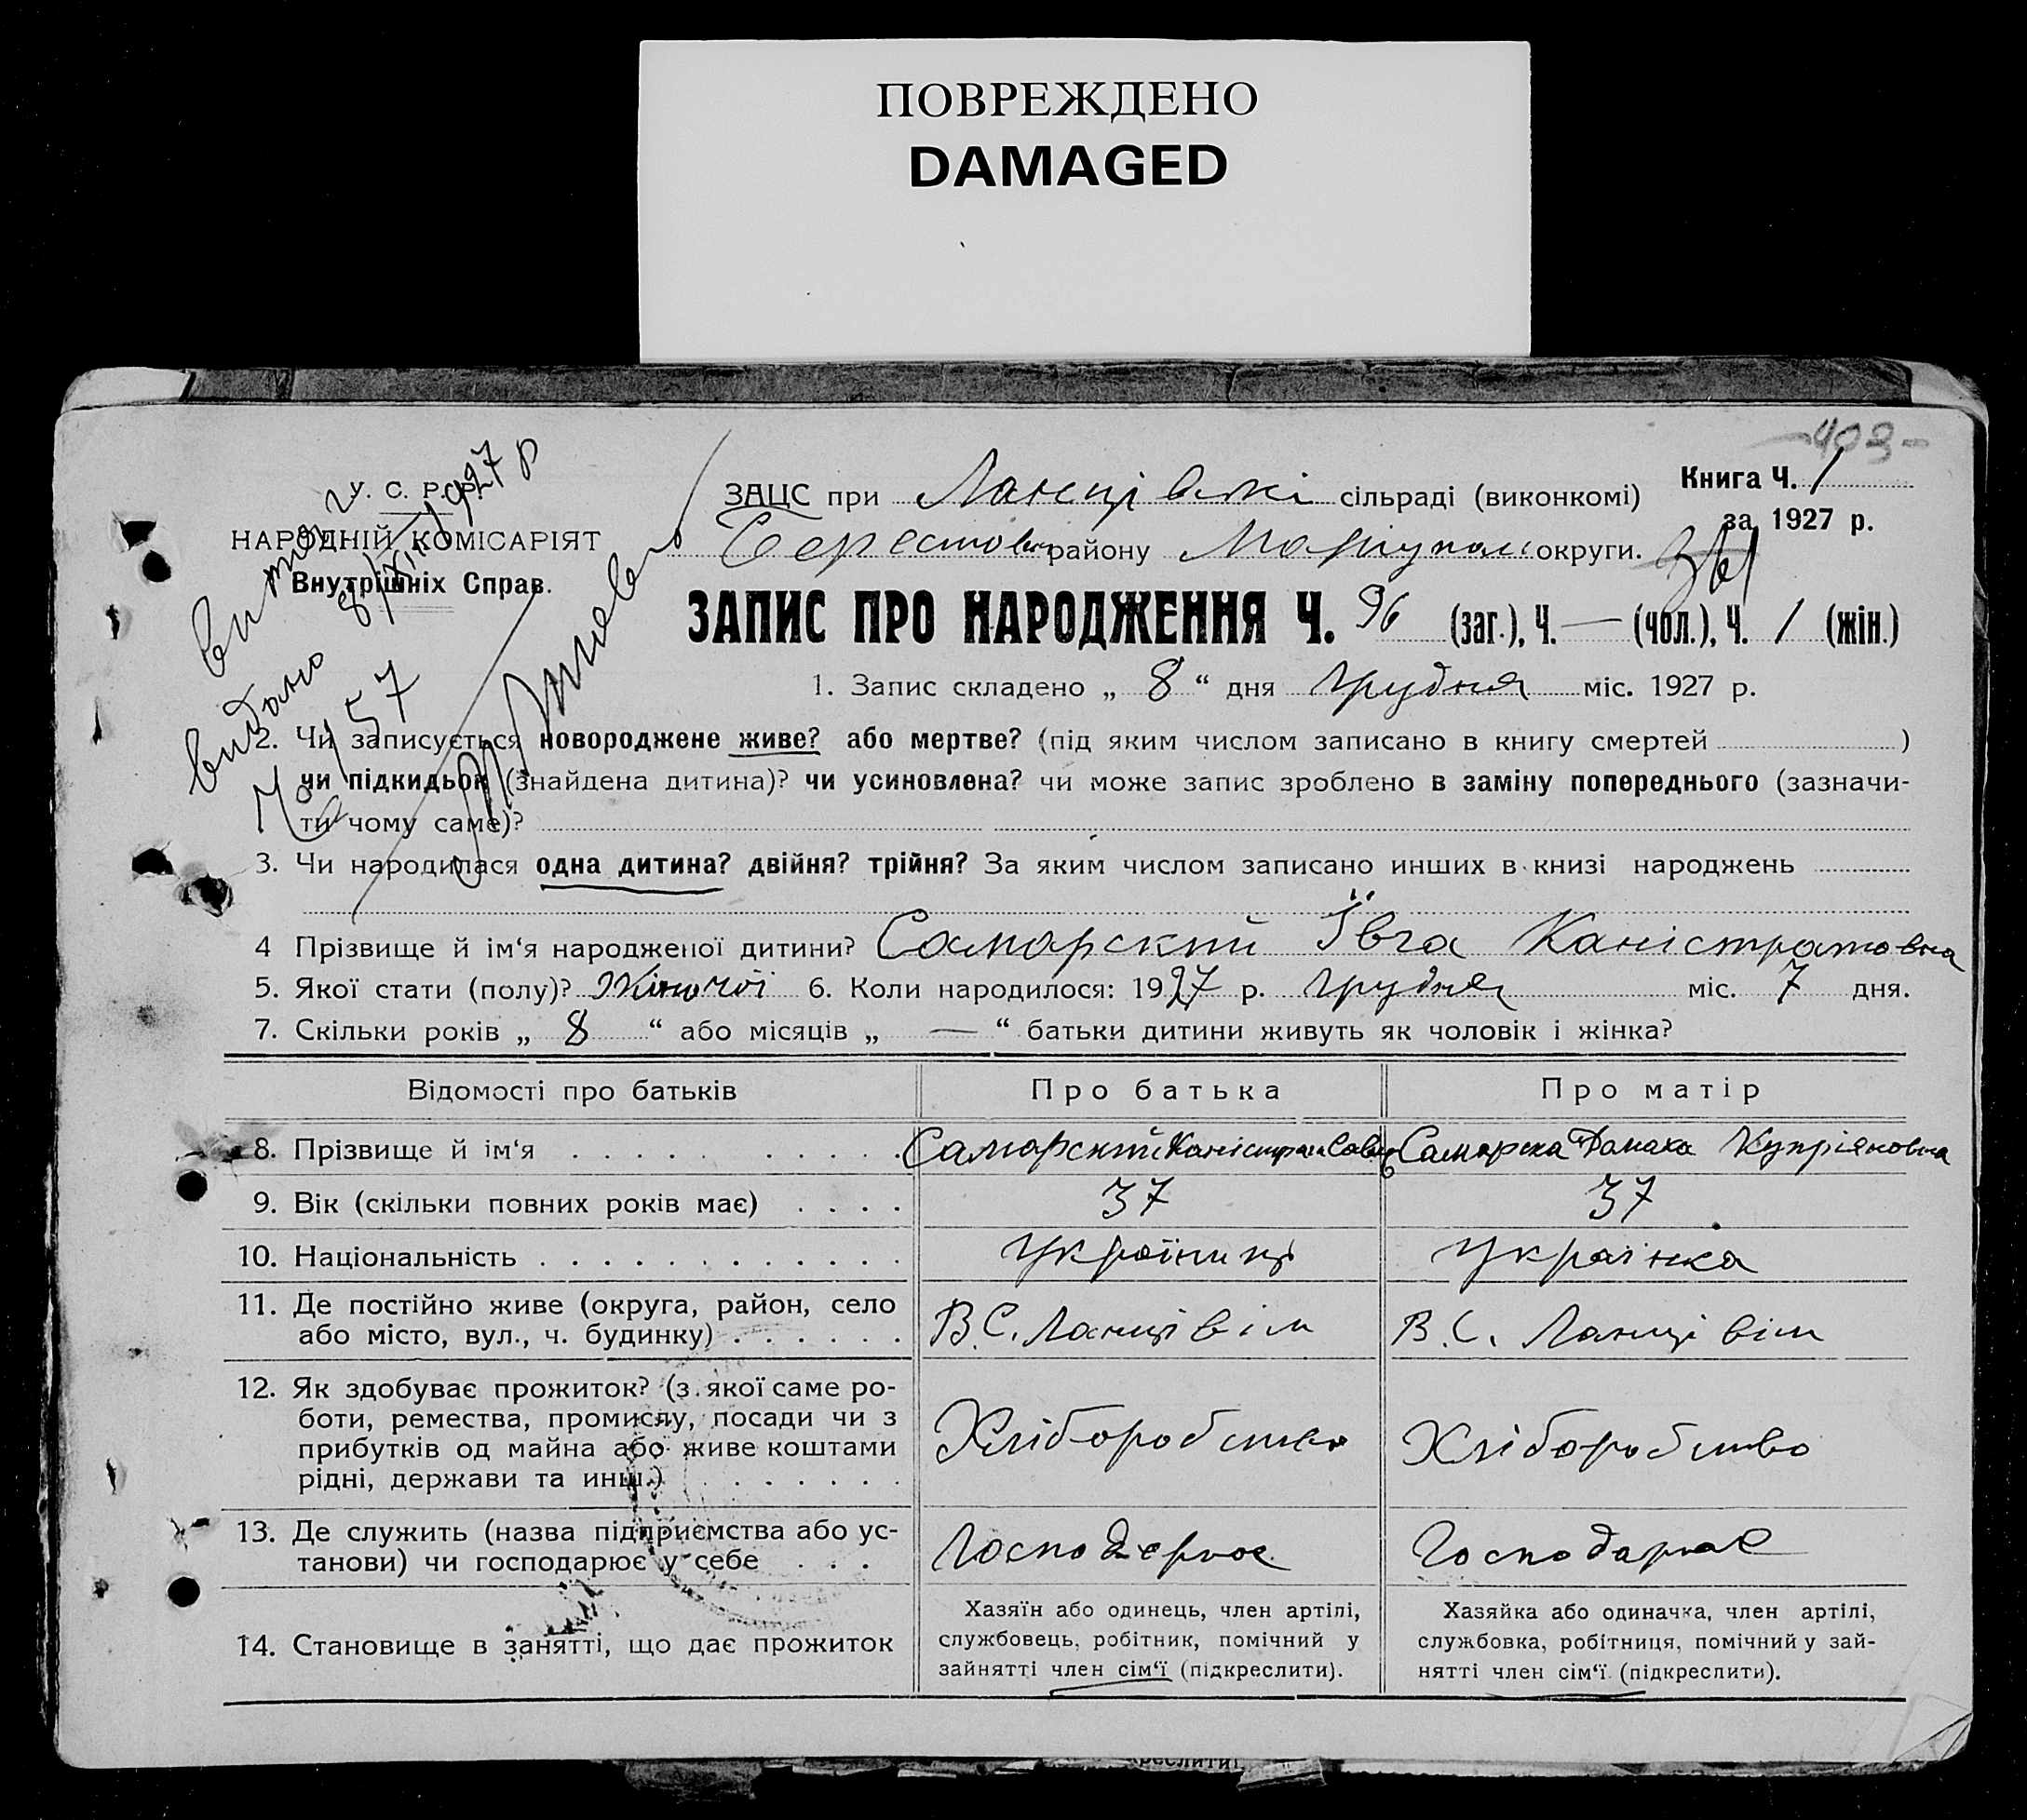 ПОВРЕЖДЕНО
DAMAGED
-403-
У. С. Р. Р.
НАРОДНІЙ КОМІСАРІЯТ
Внутрішніх Справ.
Витяг
видано 8/XII 1927 р
№ 457
ЗАЦС при Ланцівські сільраді (виконкомі) Книга Ч. 1
Берестовск району Маріупол округи. за 1927 р.
ЗАПИС ПРО НАРОДЖЕННЯ Ч. 96 (заг.), Ч. — (чол.), Ч. 1 (жін.)
1. Запис складено „ 8 “ дня грудня міс. 1927 р.
2. Чи записується новороджене живе? або мертве? (під яким числом записано в книгу смертей )
чи підкидьок (знайдена дитина)? чи усиновлена? чи може запис зроблено в заміну попереднього (зазначи-
ти чому саме)?
3. Чи народилася одна дитина? двійня? трійня? За яким числом записано инших в книзі народжень
4 Прізвище й ім‘я народженої дитини? Самарский Ївга Каністратовна
5. Якої стати (полу)? Жіночої 6. Коли народилося: 1927 р. грудня міс. 7 дня.
7. Скільки років „ 8 “ або місяців „ — “ батьки дитини живуть як чоловік і жінка?
Відомості про батьків Про батька Про матір
8. Прізвище й ім‘я . . . . . . . . . . Самарский Каністрат Савич Самарска Домаха Купріяновна
9. Вік (скільки повних років має) . . . . 37 37
10. Національність . . . . . . . . . . . . . Україниць Українка
11. Де постійно живе (округа, район, село
або місто, вул., ч. будинку) . . . . . . В.С. Ланцівім В.С. Ланцівім
12. Як здобуває прожиток? (з якої саме ро-
боти, ремества, промислу, посади чи з
прибутків од майна або живе коштами
рідні, держави та инш.) . . . . . . . Хліборобство Хліборобство
13. Де служить (назва підприємства або ус-
танови) чи господарює у себе . . . Господарює Господарює
14. Становище в занятті, що дає прожиток
Хазяїн або одинець, член артілі,
службовець, робітник, помічний у
зайнятті член сім‘ї (підкреслити).
Хазяйка або одиначка, член артілі,
службовка, робітниця, помічний у зай-
нятті член сім‘ї (підкреслити).